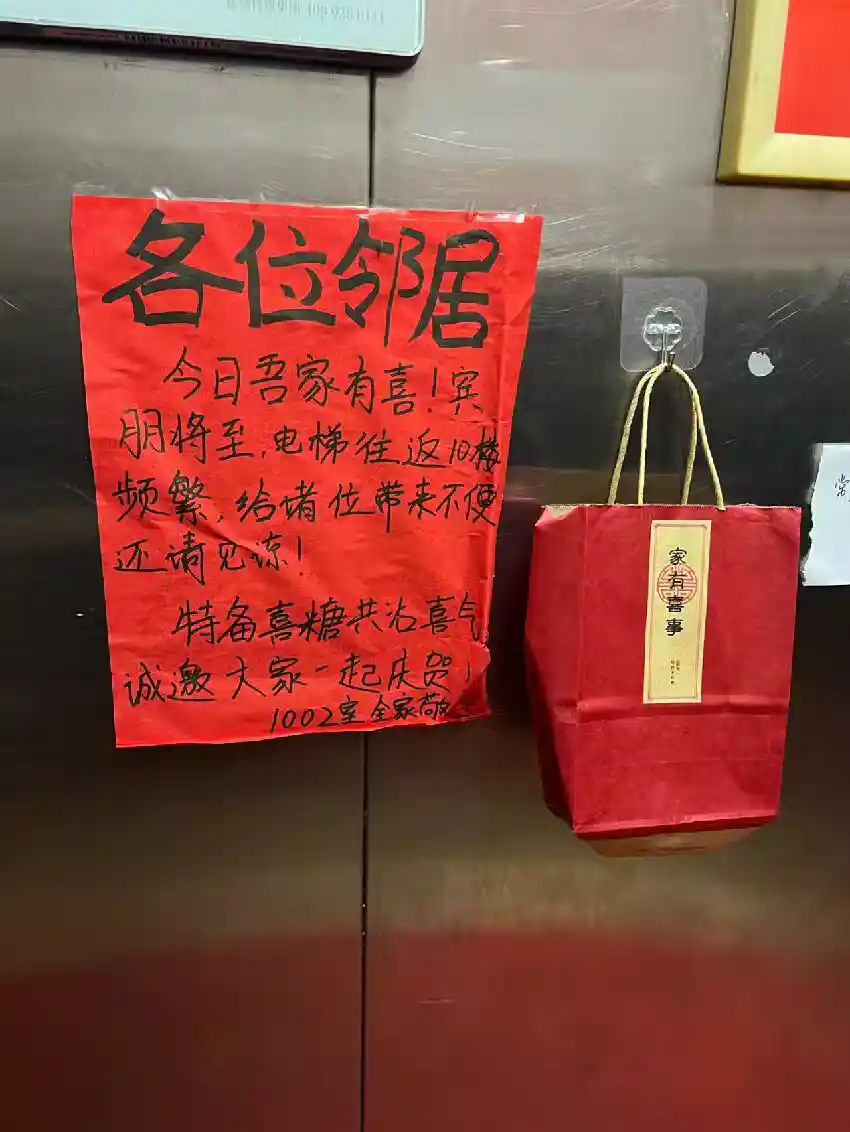 各位邻居
今日吾家有喜!宾
朋将至,电梯往返10楼
频繁,给诸位带来不便
还请见谅!
特备喜糖共沾喜气
诚邀大家一起庆贺!
1002室 全家敬
家有喜事
常